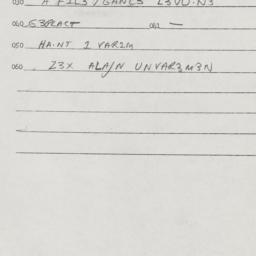 030 A FIL3/GANCS L3VU.N3
040 G3PRACT 041 —
050 HA.NT 1 VAR2M
060 Z3X ALA/N UNVAR3M3N